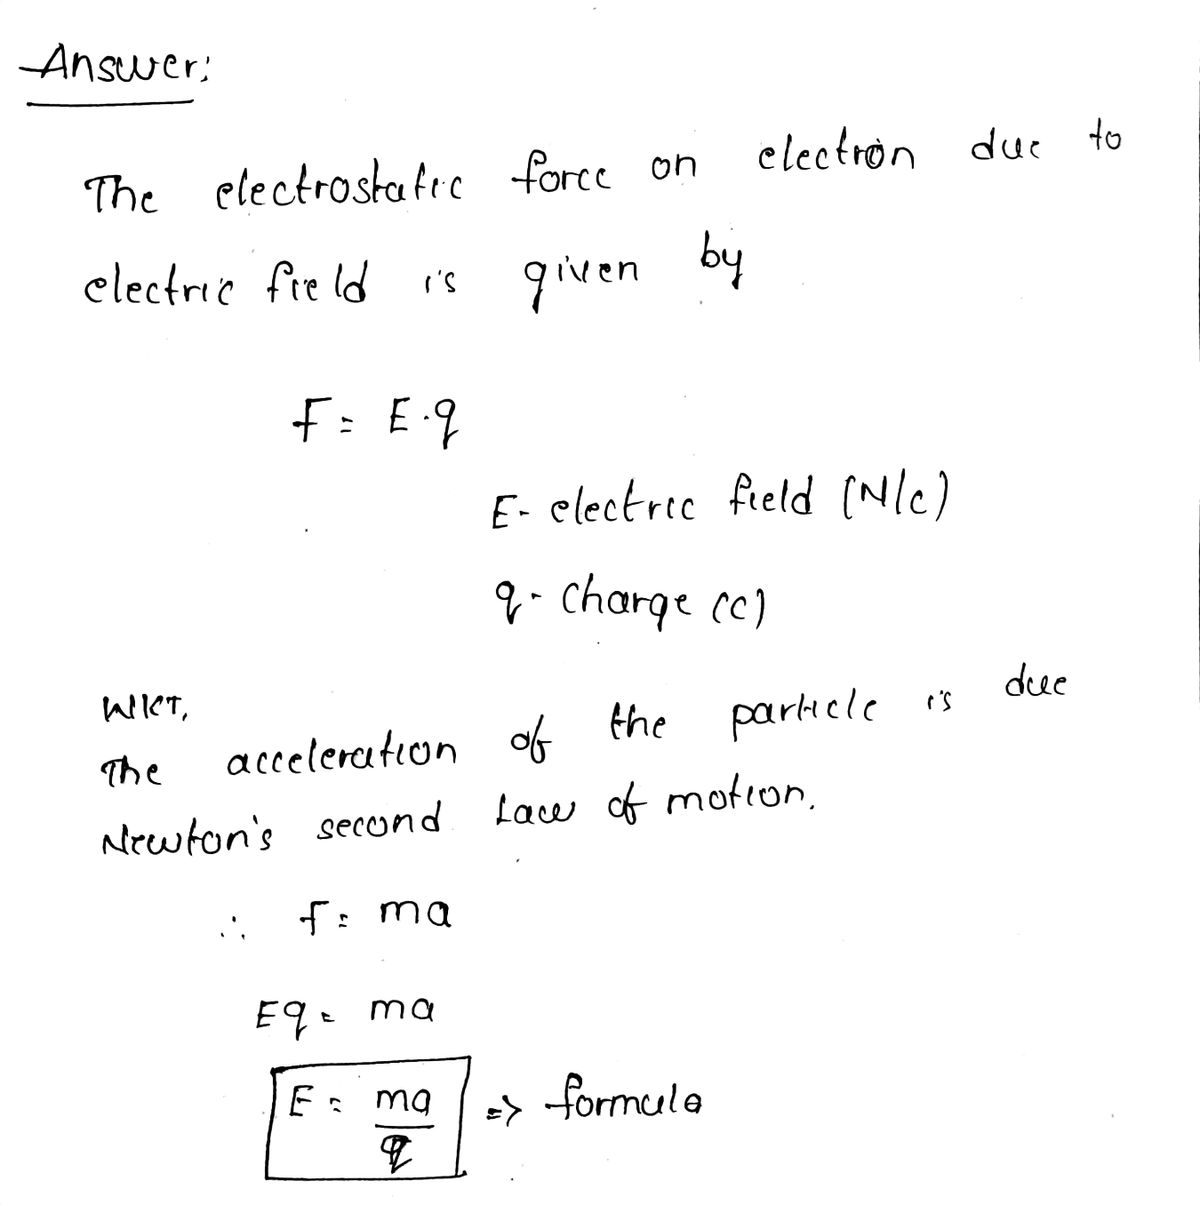 Answer:
The electrostatic force on electron due to
electric field is given by
F = E·q
E- electric field (N/C)
q- Charge (C)
WKT,
The acceleration of the particle is due
Newton's second Law of motion.
∴ F = ma
Eq = ma
E = ma/q => formula